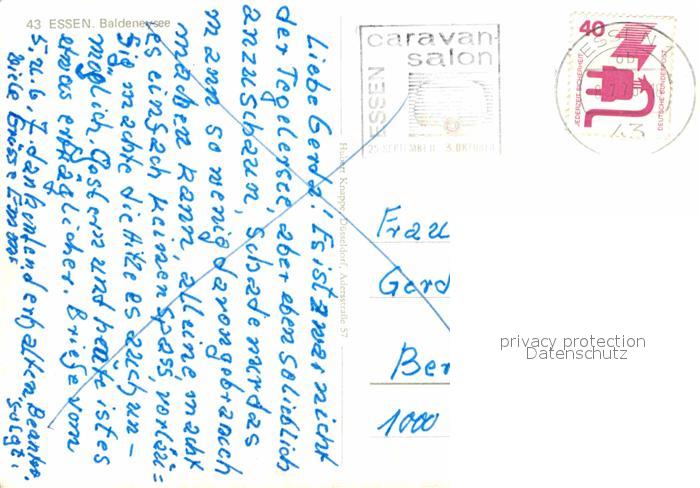 43 ESSEN. Baldeneysee
Liebe Gerda! Es ist zwar nicht
der Tegelersee, aber eben so lieblich
anzuschaun, Schade nur das
man so wenig davon gebrauch
machen kann, alleine macht
es einfach keinen spass, vorläu=
fig machte die Hitze es auch un-
möglich. Gestern und heute ist es
etwas erträglicher. Briefe vom
5. u. 6. 7. dankend erhalten, Beantw.
folgt.
Viele Grüsse Emma
Hubert Knappe, Düsseldorf, Adersstraße 57
caravan-
salon
ESSEN
25. SEPTEMBER - 3. OKTOBER
ESSEN
43
40
JEDERZEIT SICHERHEIT
DEUTSCHE BUNDESPOST
Frau
Gerd
Ber
1000
privacy protection
Datenschutz